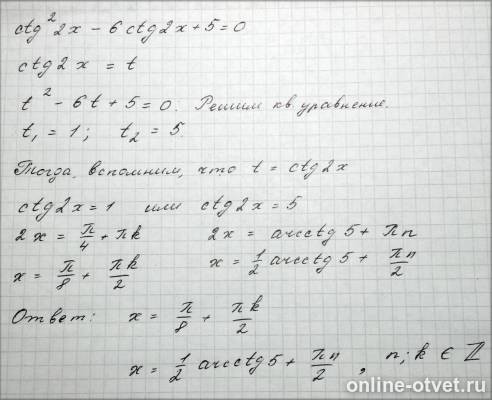 ctg²2x - 6ctg2x + 5 = 0
ctg2x = t
t² - 6t + 5 = 0. Решим кв. уравнение.
t₁ = 1; t₂ = 5.
Тогда, вспомним, что t = ctg2x
ctg2x = 1 или ctg2x = 5
2x = π/4 + πk 2x = arcctg5 + πn
x = π/8 + πk/2 x = 1/2 arcctg5 + πn/2
Ответ: x = π/8 + πk/2
x = 1/2 arcctg5 + πn/2, n; k ∈ ℤ
online-otvet.ru